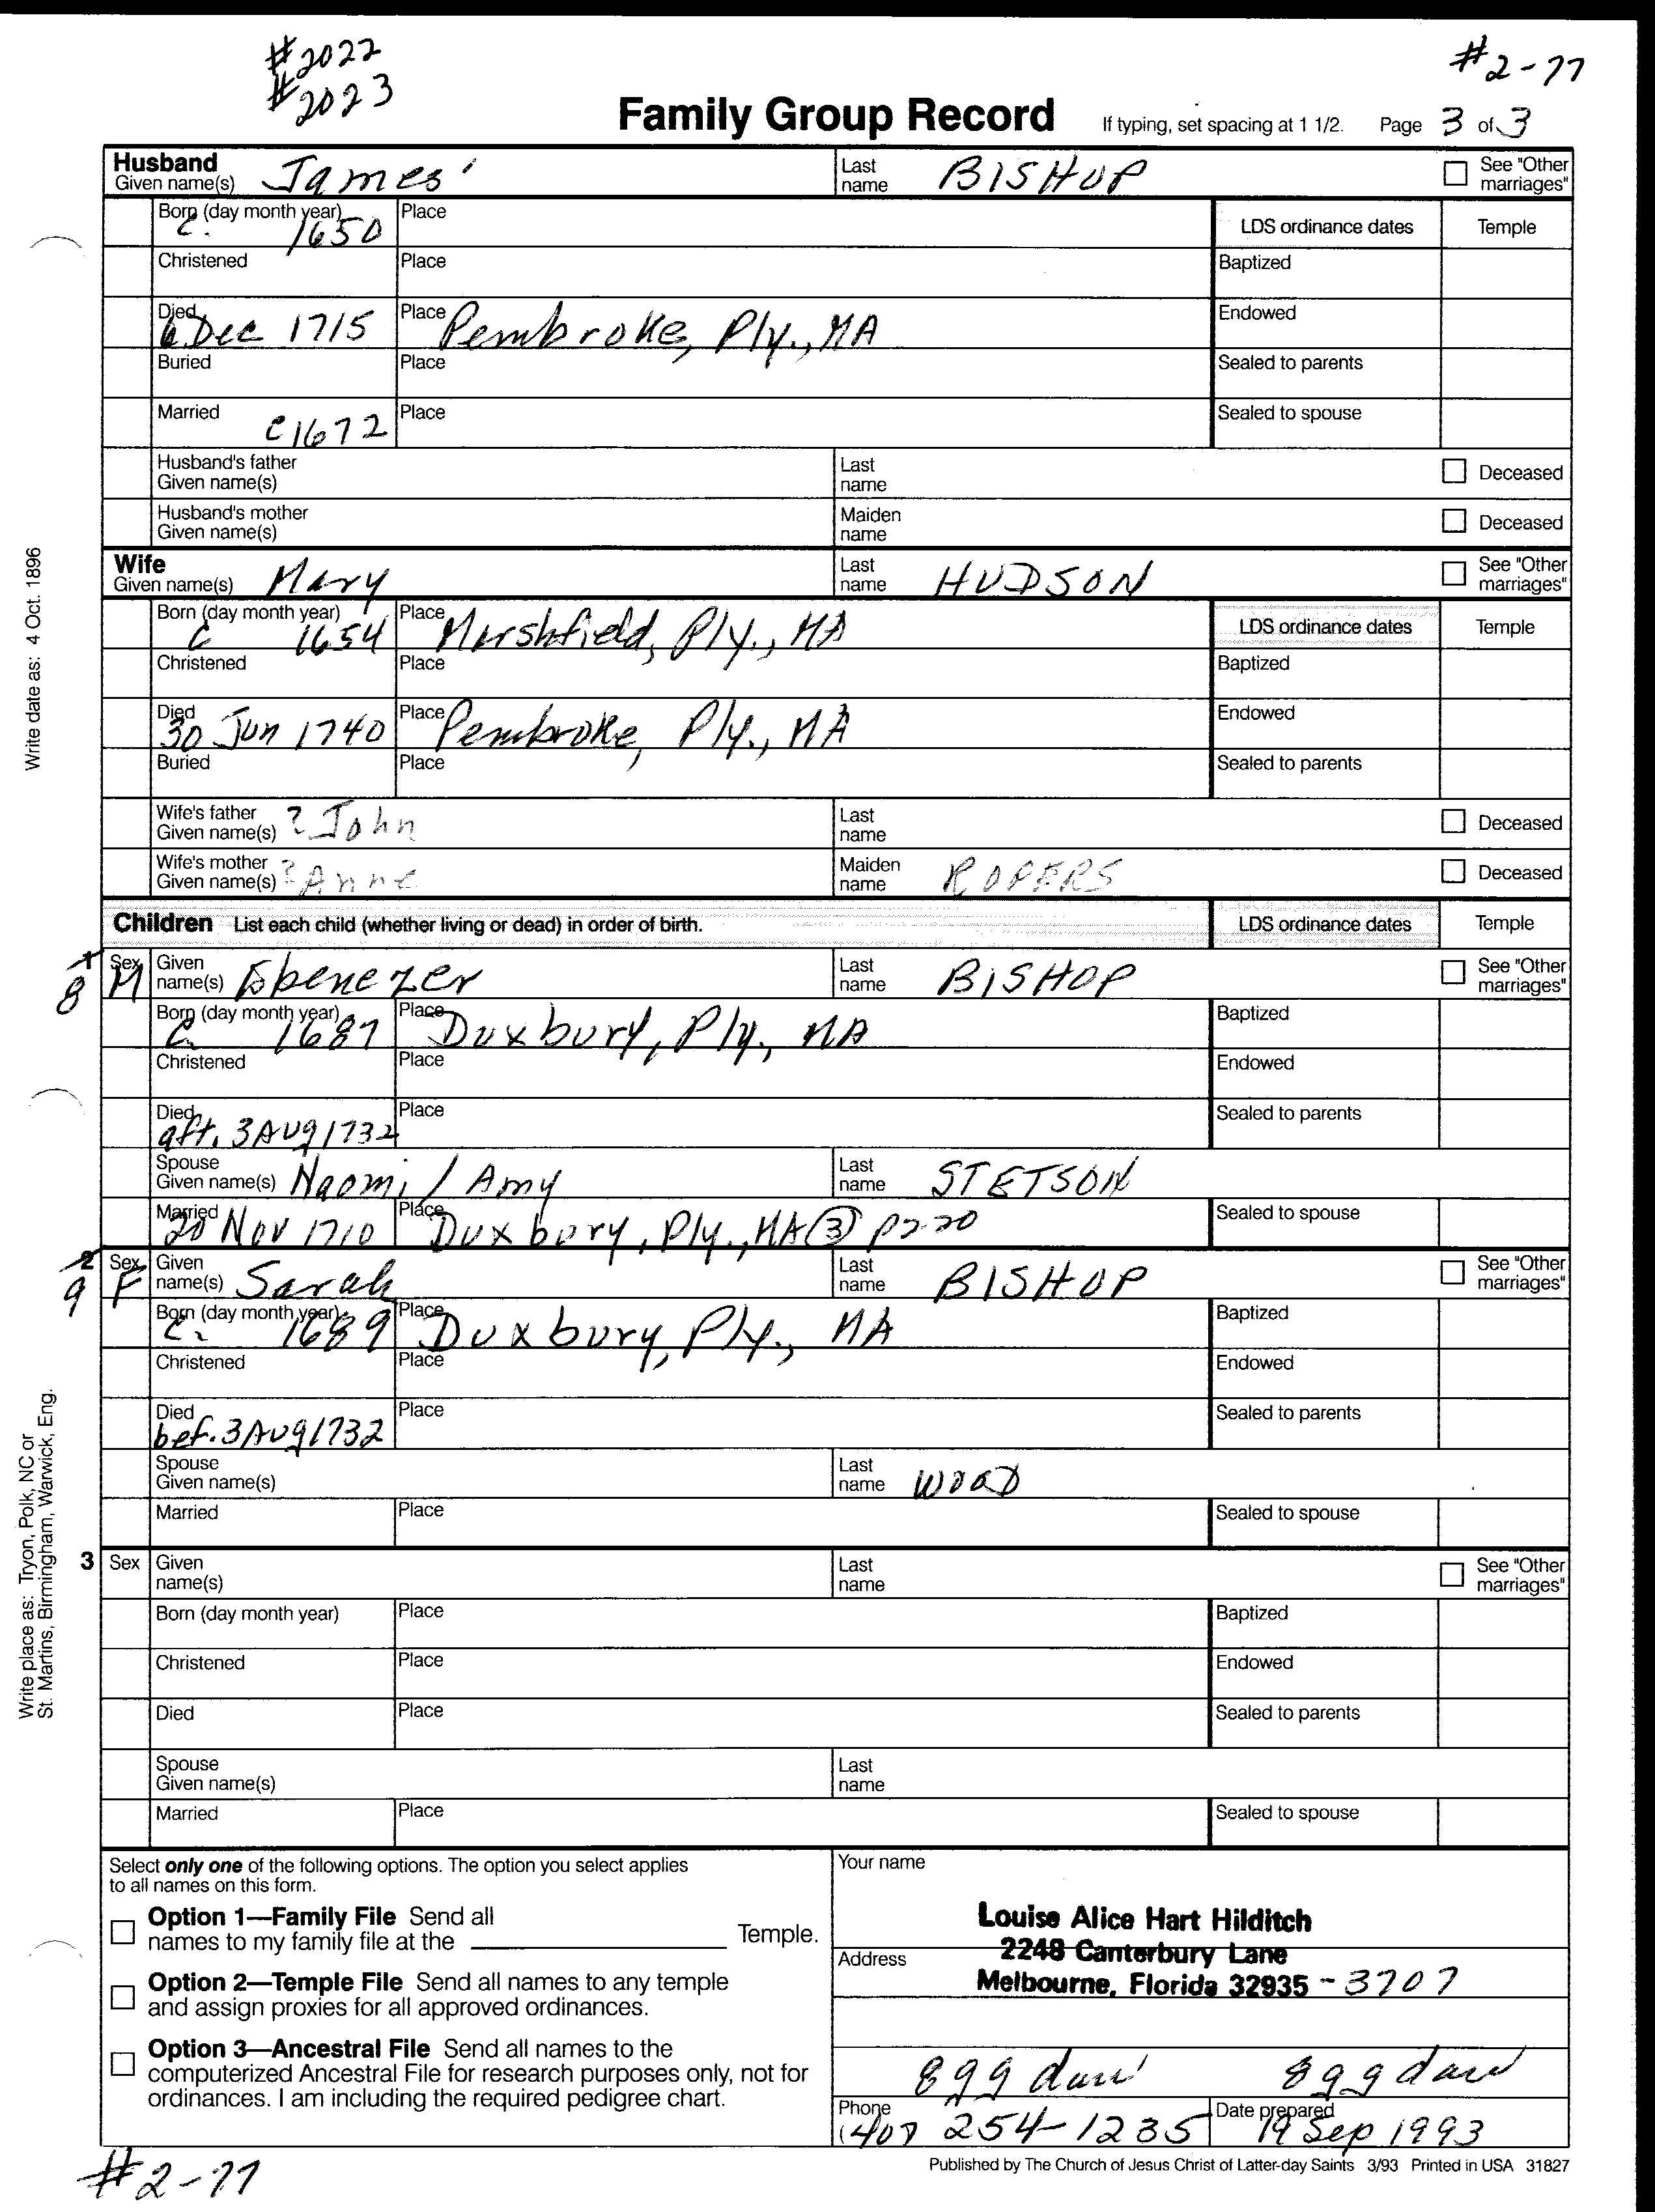 #2022
#2023
#2-77
Family Group Record If typing, set spacing at 1 1/2. Page 3 of 3
Husband
Given name(s) James Last name BISHOP See "Other marriages"
Born (day month year) c. 1650 Place LDS ordinance dates Temple
Christened Place Baptized
Died 6 Dec 1715 Place Pembroke, Ply., MA Endowed
Buried Place Sealed to parents
Married c 1672 Place Sealed to spouse
Husband's father Given name(s) Last name Deceased
Husband's mother Given name(s) Maiden name Deceased
Wife
Given name(s) Mary Last name HUDSON See "Other marriages"
Born (day month year) c 1654 Place Marshfield, Ply., MA LDS ordinance dates Temple
Christened Place Baptized
Died 30 Jun 1740 Place Pembroke, Ply., MA Endowed
Buried Place Sealed to parents
Wife's father Given name(s) ? John Last name Deceased
Wife's mother Given name(s) ? Anne Maiden name Deceased
Children List each child (whether living or dead) in order of birth. LDS ordinance dates Temple
1 8 Sex M Given name(s) Ebenezer Last name BISHOP See "Other marriages"
Born (day month year) c. 1687 Place Duxbury, Ply., MA Baptized
Christened Place Endowed
Died aft. 3 Aug 1732 Place Sealed to parents
Spouse Given name(s) Naomi / Amy Last name STETSON
Married 20 Nov 1710 Place Duxbury, Ply., MA (3) Sealed to spouse
2 9 Sex F Given name(s) Sarah Last name BISHOP See "Other marriages"
Born (day month year) c. 1689 Place Duxbury, Ply., MA Baptized
Christened Place Endowed
Died bef. 3 Aug 1732 Place Sealed to parents
Spouse Given name(s) Last name WOOD
Married Place Sealed to spouse
3 Sex Given name(s) Last name See "Other marriages"
Born (day month year) Place Baptized
Christened Place Endowed
Died Place Sealed to parents
Spouse Given name(s) Last name
Married Place Sealed to spouse
Select only one of the following options. The option you select applies
to all names on this form.
Option 1—Family File Send all
names to my family file at the Temple.
Option 2—Temple File Send all names to any temple
and assign proxies for all approved ordinances.
Option 3—Ancestral File Send all names to the
computerized Ancestral File for research purposes only, not for
ordinances. I am including the required pedigree chart.
Your name
Louise Alice Hart Hilditch
Address 2248 Canterbury Lane
Melbourne, Florida 32935 - 3707
8gg dau 8gg dau
Phone (407 254-1235 Date prepared 19 Sep 1993
Published by The Church of Jesus Christ of Latter-day Saints 3/93 Printed in USA 31827
#2-77
Write date as: 4 Oct. 1896
Write place as: Tryon, Polk, NC or
St. Martins, Birmingham, Warwick, Eng.